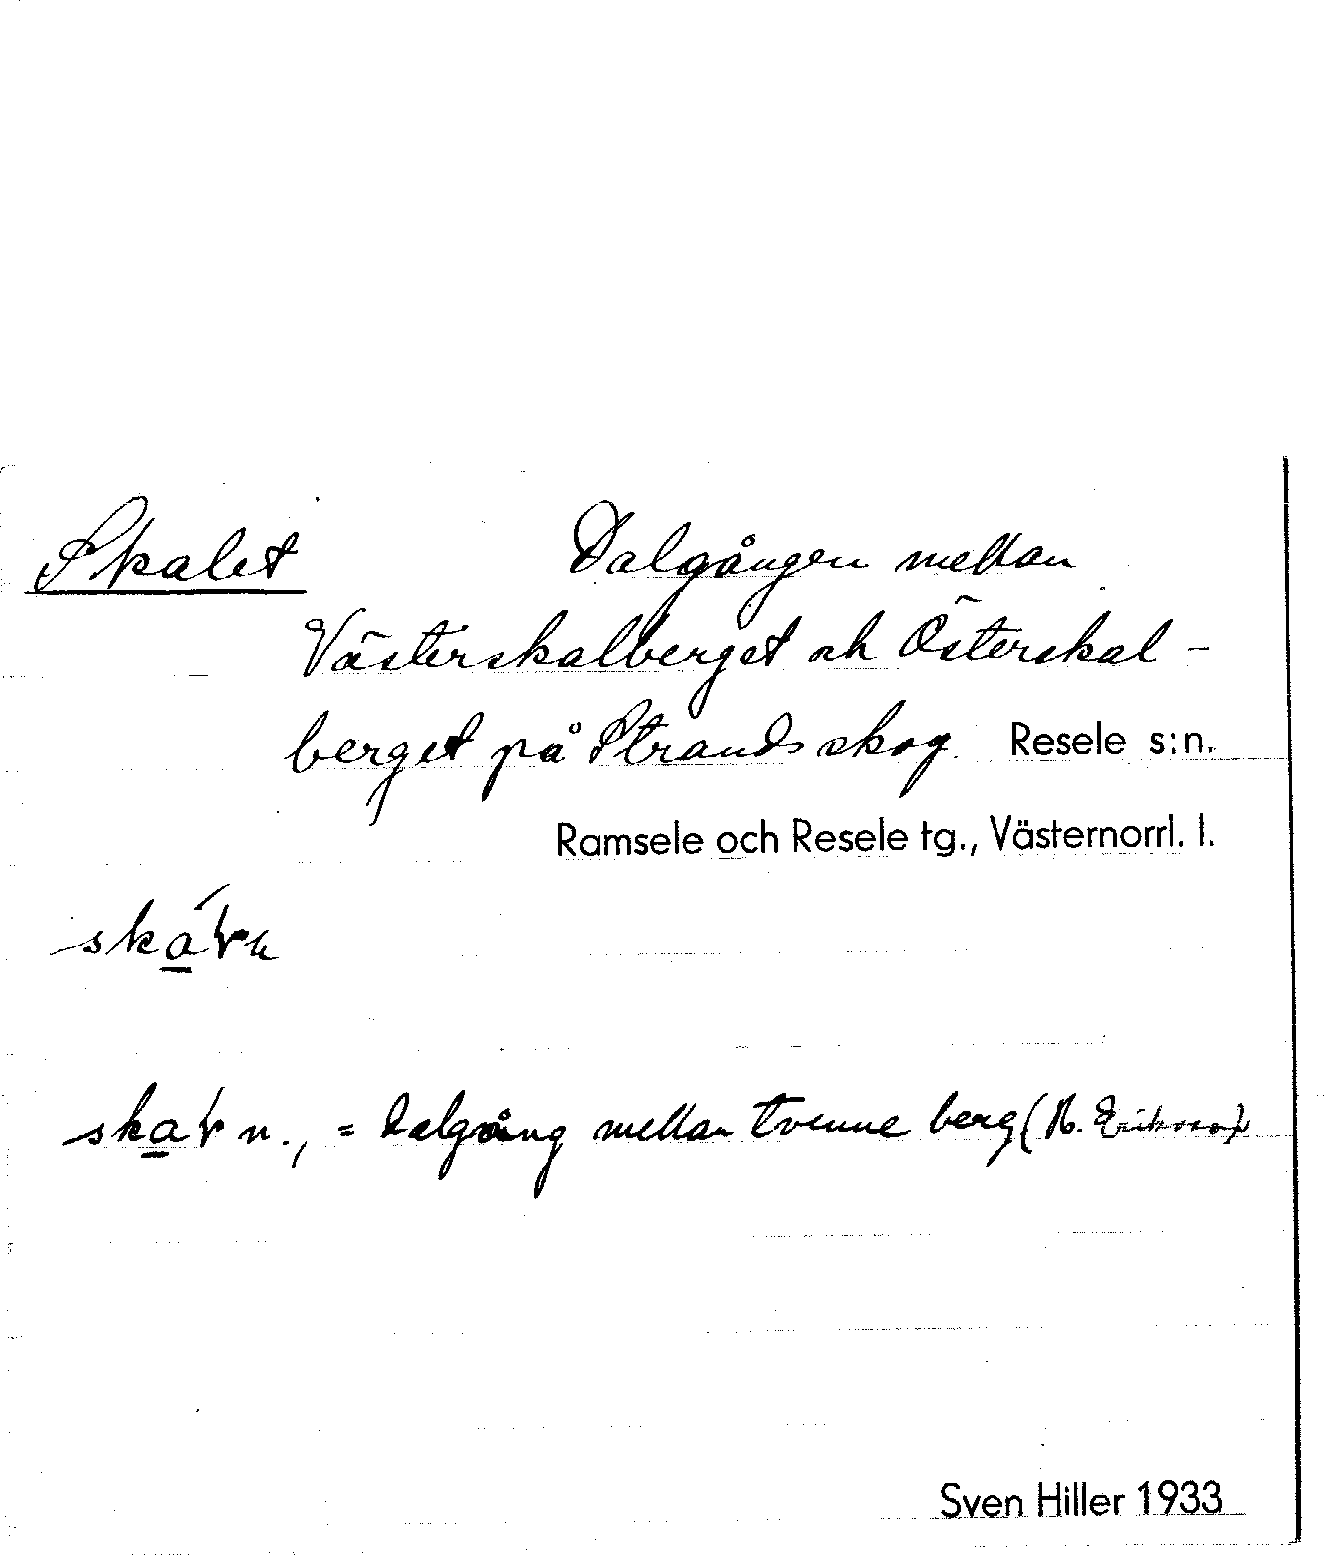 Skalet Dalgången mellan
Västerskalberget och Österskal-
berget på Strands skog. Resele s:n.
Ramsele och Resele tg., Västernorrl. l.
n., = dalgång mellan tvenne berg (N. Eriksson)
Sven Hiller 1933